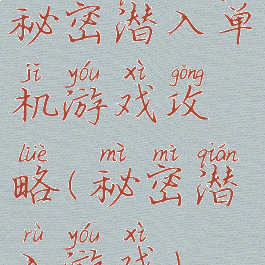 秘密潜入单
jī yóu xì gōng
机游戏攻
lüè mì mì qián
略(秘密潜
rù yóu xì
入游戏)